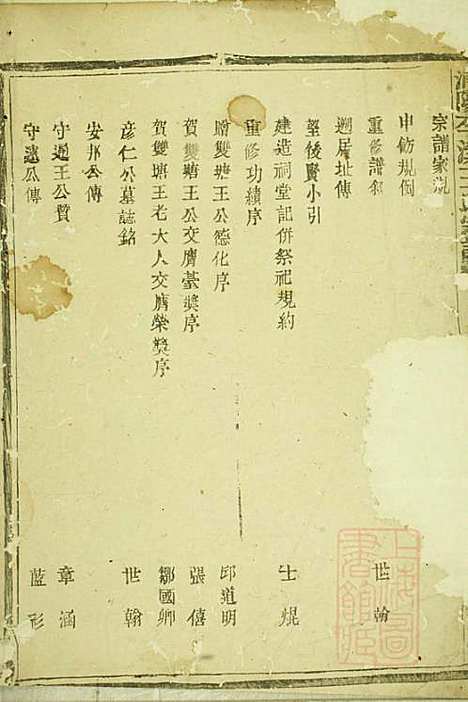 宗譜家規
申飭規倜
重修譜叙　世翰
遡居址傳
望後賢小引
建造祠堂記併祭祀規約　士焜
重修功績序
贈雙塘王公德化序　邱道明
賀雙塘王公交膺豪奬序　張僖
賀雙塘王老大人交膺榮奬序　鄒國卿
彦仁公墓誌銘　世翰
安邦公傳
守通王公贊　章涵
守遠公傳　藍彩
上海圖書館藏